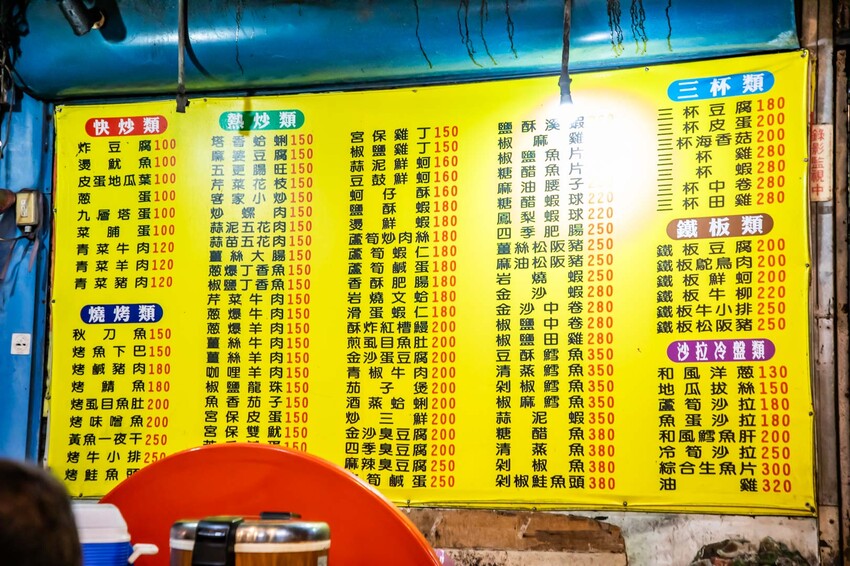 快炒類
炸豆腐100
燙魷魚100
皮蛋地瓜葉100
蔥蛋100
九層塔蛋100
菜脯蛋100
青菜牛肉120
青菜羊肉120
青菜豬肉120
燒烤類
秋刀魚150
烤魚下巴150
烤鹹豬肉180
烤鯖魚180
烤虱目魚肚200
烤味噌魚200
黃魚一夜干250
烤牛小排250
烤鮭魚頭
熱炒類
塔香蛤蜊150
麻婆豆腐150
五更腸旺150
芹菜花枝150
客家小炒150
炒螺肉150
蒜泥五花肉150
蒜苗五花肉150
薑絲大腸150
蔥爆丁香魚150
椒鹽丁香魚150
芹菜牛肉150
蔥爆牛肉150
蔥爆羊肉150
薑絲牛肉150
薑絲羊肉150
咖哩羊肉150
椒鹽龍珠150
魚香茄子150
宮保皮蛋150
宮保雙魷150
宮保雞丁150
椒鹽雞丁150
蒜泥鮮蚵160
豆鼓鮮蚵160
蚵仔酥160
鹽酥蝦180
燙鮮蝦180
蘆筍炒肉絲180
蘆筍蝦仁180
蘆筍鹹蛋180
香酥肥腸180
岩燒文蛤180
滑蛋蝦仁180
酥炸紅槽鰻200
煎虱目魚肚200
金沙蛋豆腐200
青椒牛肉200
茄子煲200
酒蒸蛤蜊200
炒三鮮200
金沙臭豆腐200
四季臭豆腐200
麻辣臭豆腐250
筍鹹蛋250
鹽酥溪蝦
椒麻雞
椒鹽魚片
糖醋魚片
麻油腰子
糖醋蝦球220
鳳梨蝦球220
四季肥腸250
薑絲松阪豬250
麻油松阪豬250
岩燒蝦250
金沙蝦280
金沙中卷280
椒鹽中卷280
椒鹽田雞280
豆酥鱈魚350
清蒸鱈魚350
剁椒鱈魚350
椒鹽鱈魚350
蒜泥蝦350
糖醋魚380
清蒸魚380
剁椒魚380
剁椒鮭魚頭380
三杯類
三杯豆腐180
三杯皮蛋200
三杯海香菇200
三杯雞280
三杯蝦280
三杯中卷280
三杯田雞280
鐵板類
鐵板豆腐200
鐵板鴕鳥肉200
鐵板鮮蚵200
鐵板牛柳220
鐵板牛小排250
鐵板松阪豬250
沙拉冷盤類
和風洋蔥130
地瓜拔絲150
蘆筍沙拉180
魚蛋沙拉180
和風鱈魚肝200
冷筍沙拉250
綜合生魚片300
油雞320
錄影監視中